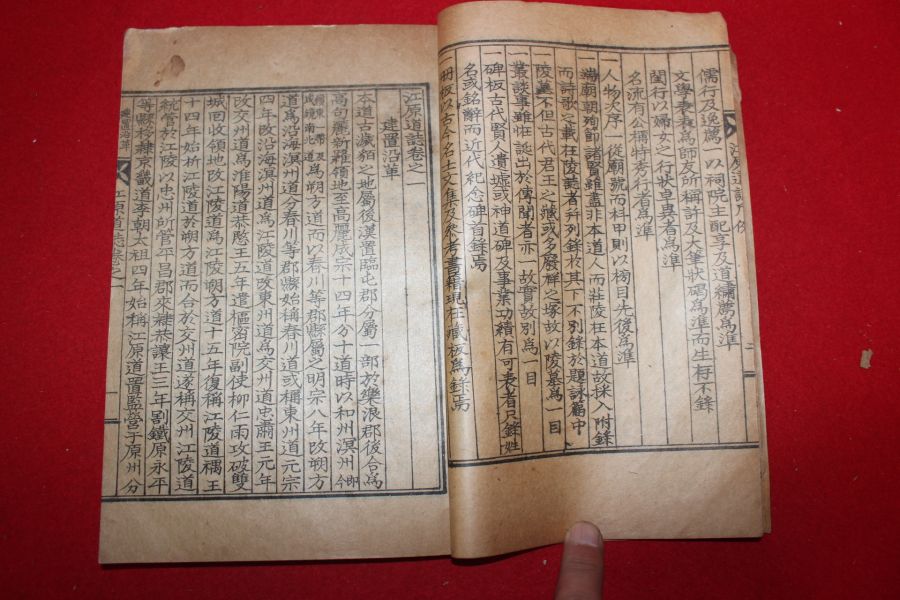 儒行及逸薦 以祠院主配享及道繡薦爲準
文學秉彛爲師友所稱許及大筆狀碣爲準而生存不錄
閨行以婦女之行狀卓異者爲準
名流有公稱特秀行者爲準
一人物次序 從朝號而科甲則以榜目先後爲準
一端朝朝殉節諸賢雖盡非本道人而莊陵在本道故採入附錄
而詩歌之載在陵誌者幷列錄於其下不別錄於題詠篇中
一陵墓不但古代君王之藏或多發祥之塚故以陵墓爲一目
一叢談事雖誕出於傳聞者亦一故實故別爲一目
一碑板古代賢人遺墟或神道碑及事業功績有可表者只錄姓
名或銘辭而近代紀念碑首錄焉
一冊板以古今名士文集及參考書籍現在藏板爲錄焉
江原道誌卷之一
建置沿革
本道古濊貊之地屬後漢置臨屯郡分屬一部於樂浪郡後合爲
高句麗新羅領地至高麗成宗十四年分十道時以和州溟州
道爲沿海溟州道分春川等郡縣始稱春川道或稱東州道元宗
四年改沿海溟州道爲江陵道改東州道爲交州道忠肅王元年
改交州道爲淮陽道恭愍王五年遣樞密院副使柳仁雨攻破雙
城回收領地改江陵道爲江陵朔方道十五年復稱江陵道禑王
十四年始析江陵道於朔方道而合於交州道遂稱交州江陵道
統管於江陵以忠州所管平昌郡來隸恭讓王三年割鐵原永平
等縣移隸京畿道李朝太祖四年始稱江原道置監營于原州分
江原道誌卷之一